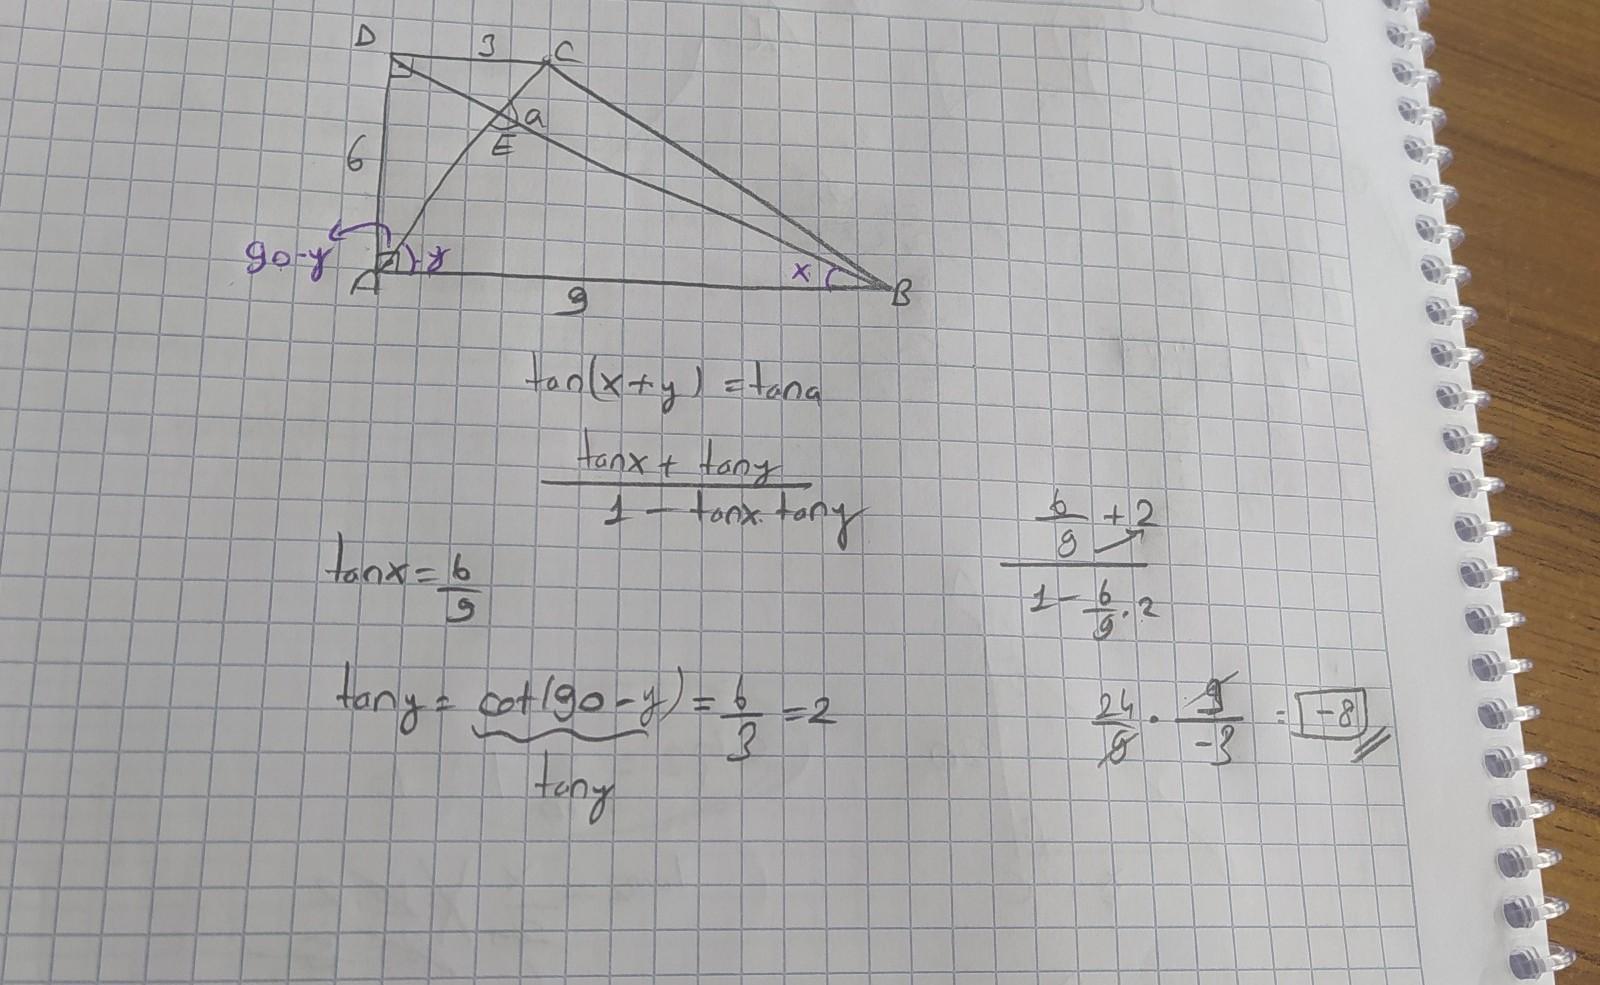 D 3 C
a
E
6
90-y
y
x
A
9
B
tan(x+y) = tana
tanx + tany
1 - tanx.tany
tanx = 6/9
tany = cot(90-y) = 6/3 = 2
tany
6/9 + 2
1 - 6/9 . 2
24/9 . 9/-3 = -8